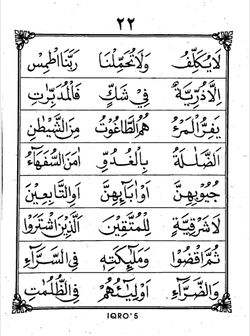 ٢٢
لَا يُكَلِّفُ وَلَا تُحَمِّلْنَا رَبَّنَا اطْمِسْ
اِلَّا ذُرِّيَّةٌ فِي شَكٍّ فَالْمُدَبِّرٰتِ
يَفِرُّ الْمَرْءُ هُمُ الطَّاغُوْتُ مِنَ الشَّيْطٰنِ
الضَّلٰلَةُ بِالْغُدُوِّ اٰمَنَ السُّفَهَاءُ
جُيُوْبِهِنَّ اَوْ اٰبَائِهِنَّ اَوِ التَّابِعِيْنَ
لَا شَرْقِيَّةٍ لِلْمُتَّقِيْنَ الَّذِيْنَ اشْتَرَوُا
ثُمَّ اَفِيْضُوْا وَمَلٰئِكَتِهٖ فِي السَّرَّاءِ
وَالضَّرَّاءِ اَوْلِيٰئُهُمُ فِي الظُّلُمٰتِ
IQRO'5